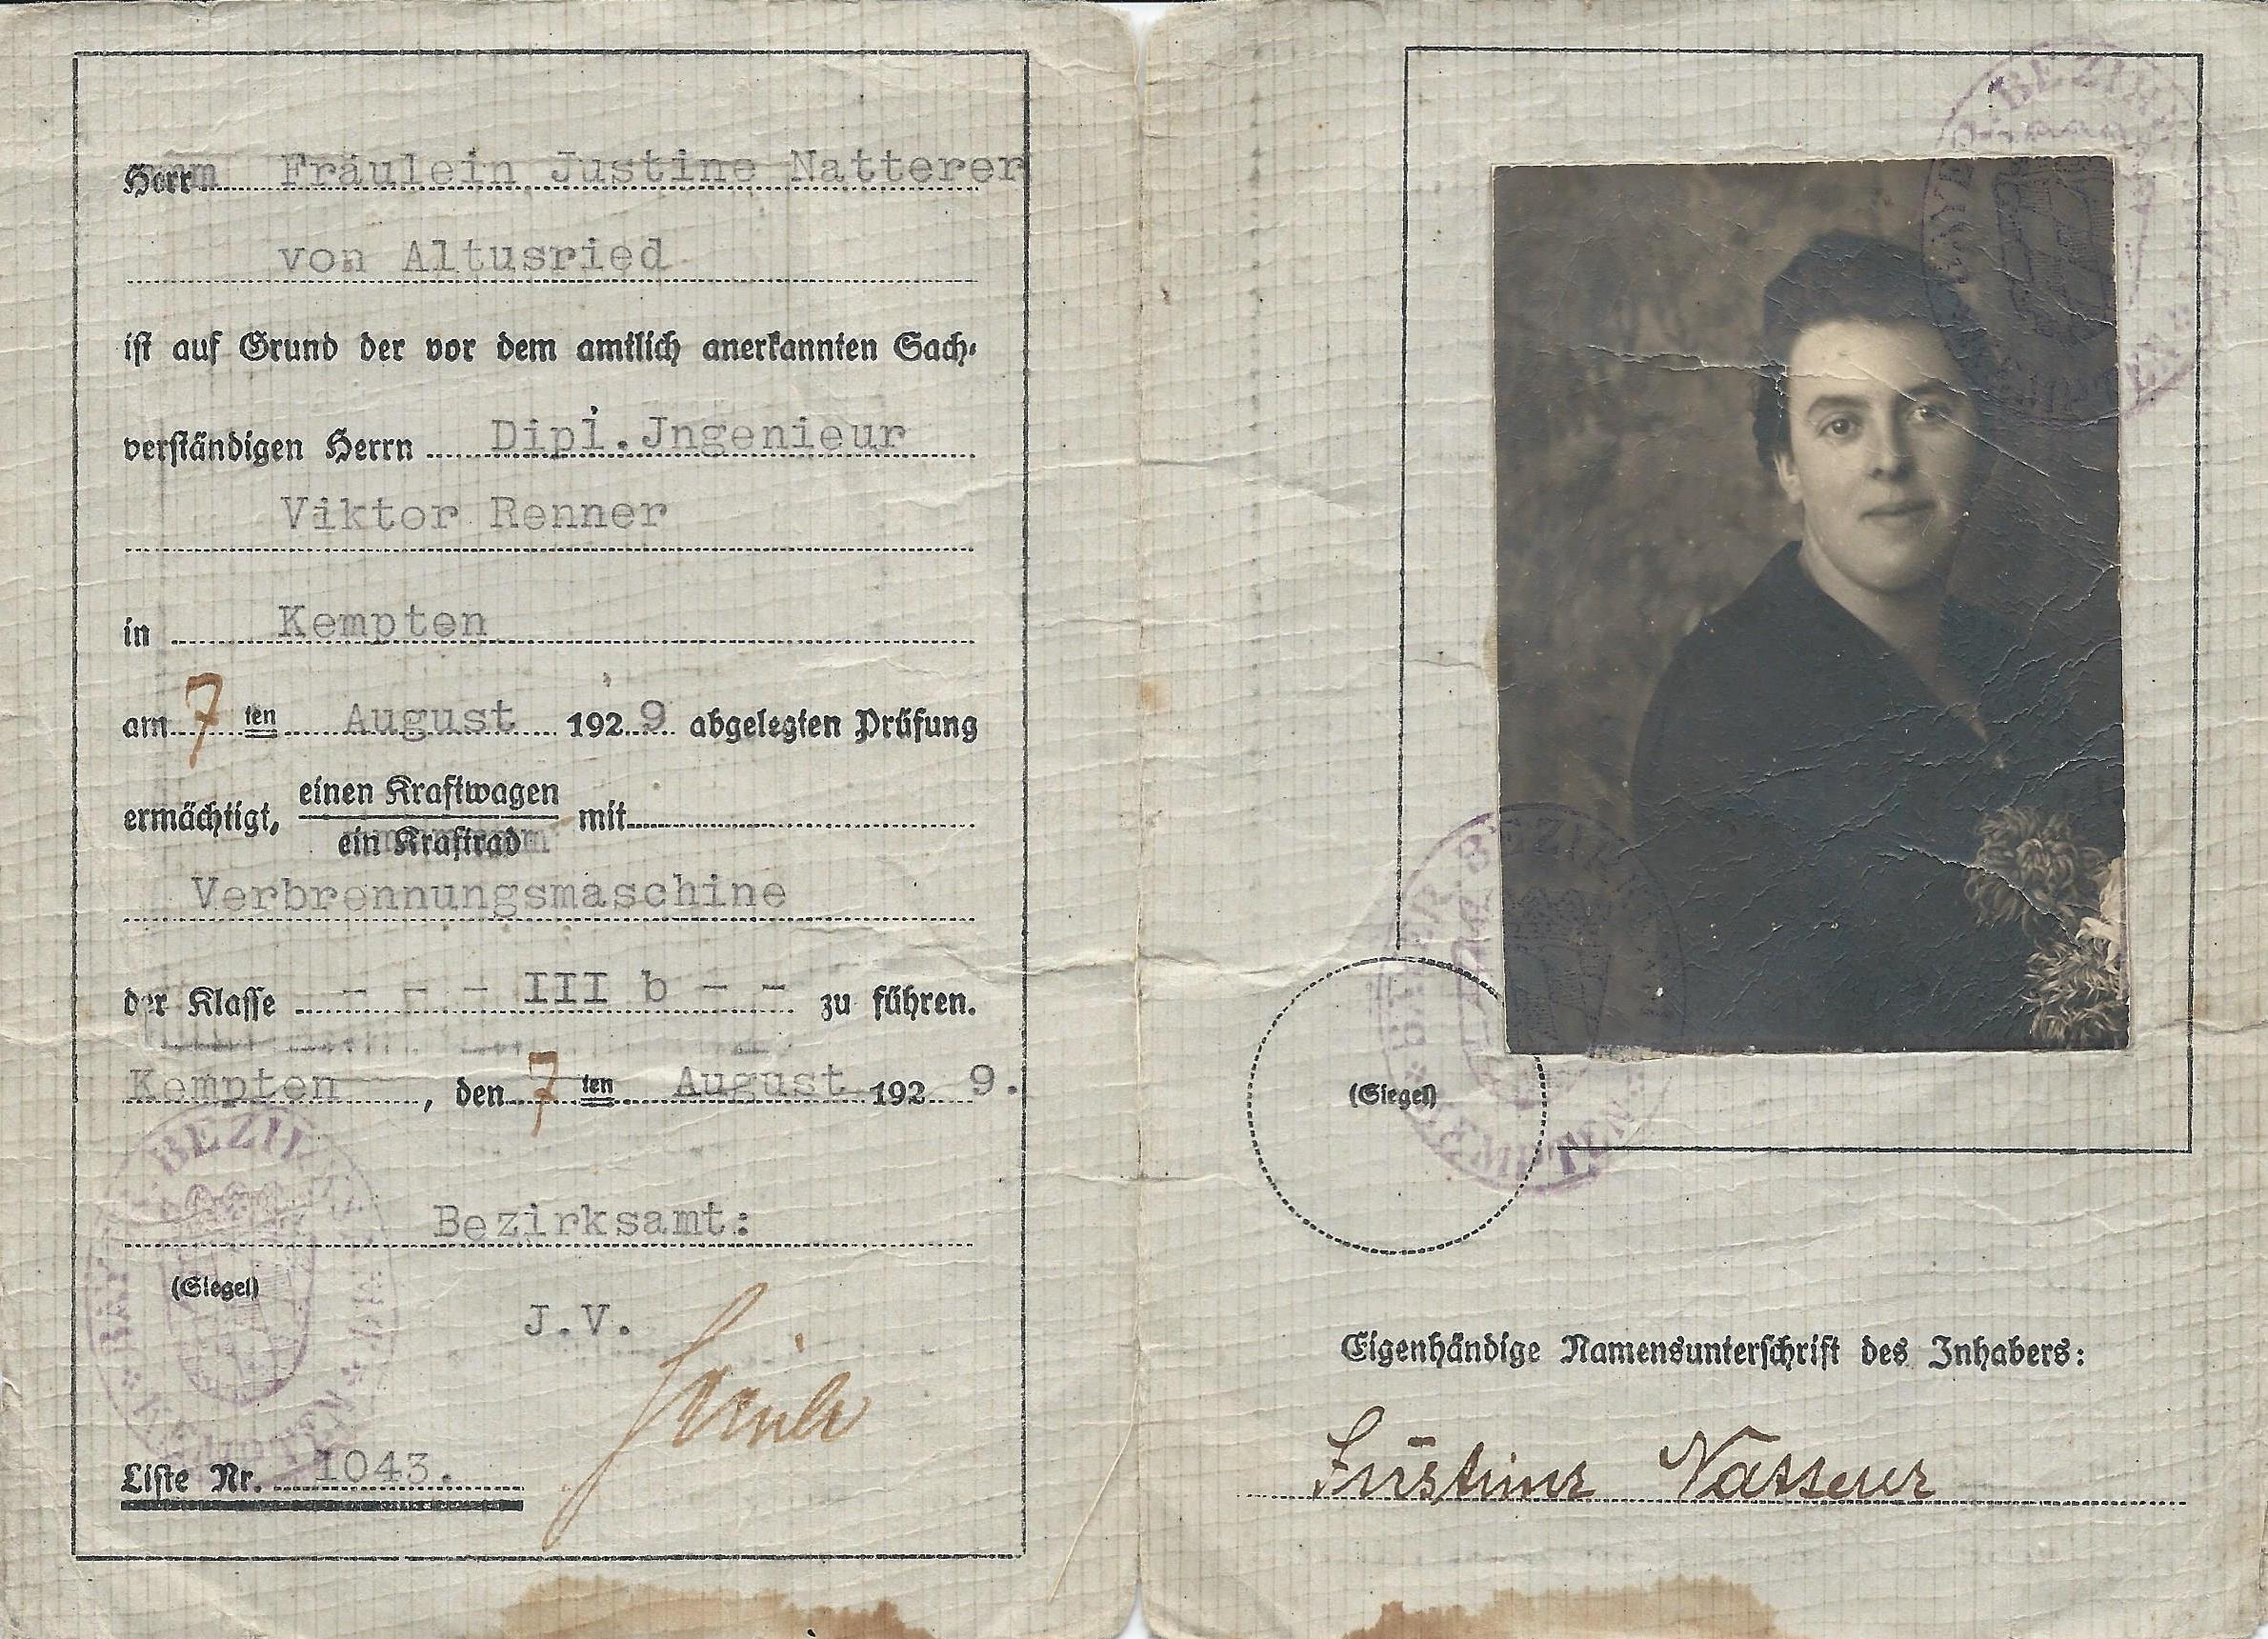 Herrn Fräulein Justine Natterer
von Altusried
ist auf Grund der vor dem amtlich anerkannten Sach-
verständigen Herrn Dipl.Jngenieur
Viktor Renner
in Kempten
am 7ten August 1929 abgelegten Prüfung
ermächtigt, einen Kraftwagen mit
ein Kraftrad
Verbrennungsmaschine
der Klasse - - - III b - - zu führen.
Kempten, den 7ten August 1929.
Bezirksamt:
(Siegel)
J.V.
Liste Nr. 1043.
BAYER. BEZIRKSAMT * KEMPTEN *
(Siegel)
Eigenhändige Namensunterschrift des Inhabers:
Justine Natterer